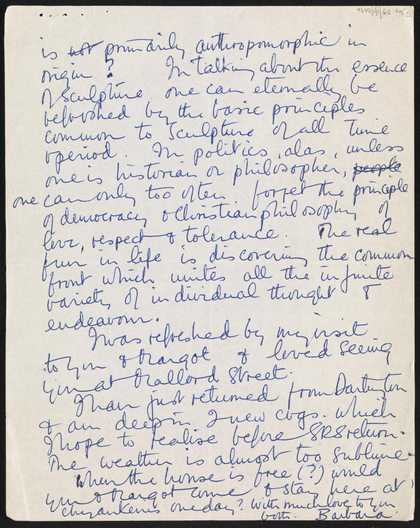 is not primarily anthropomorphic in
origin? In talking about the essence
of sculpture one can eternally be
refreshed by the basic principles
common to sculpture of all time
& period. In politics, alas, unless
one is historian or philosopher, people
one can only too often forget the principle
of democracy & Christian philosophy of
love, respect & tolerance. The real
fun in life is discovering the common
front which unites all the infinite
variety of individual thought &
endeavour.
I was refreshed by my visit
to you & Margot & loved seeing
you at Mallord Street.
I have just returned from Dartington
& am deep in 2 new cvgs. which
I hope to realise before SRS return.
The weather is almost too sublime.
When the house is free (?) would
you & Margot come & stay here at
Chy an Kerris one day? With much love to you
both. Barbara